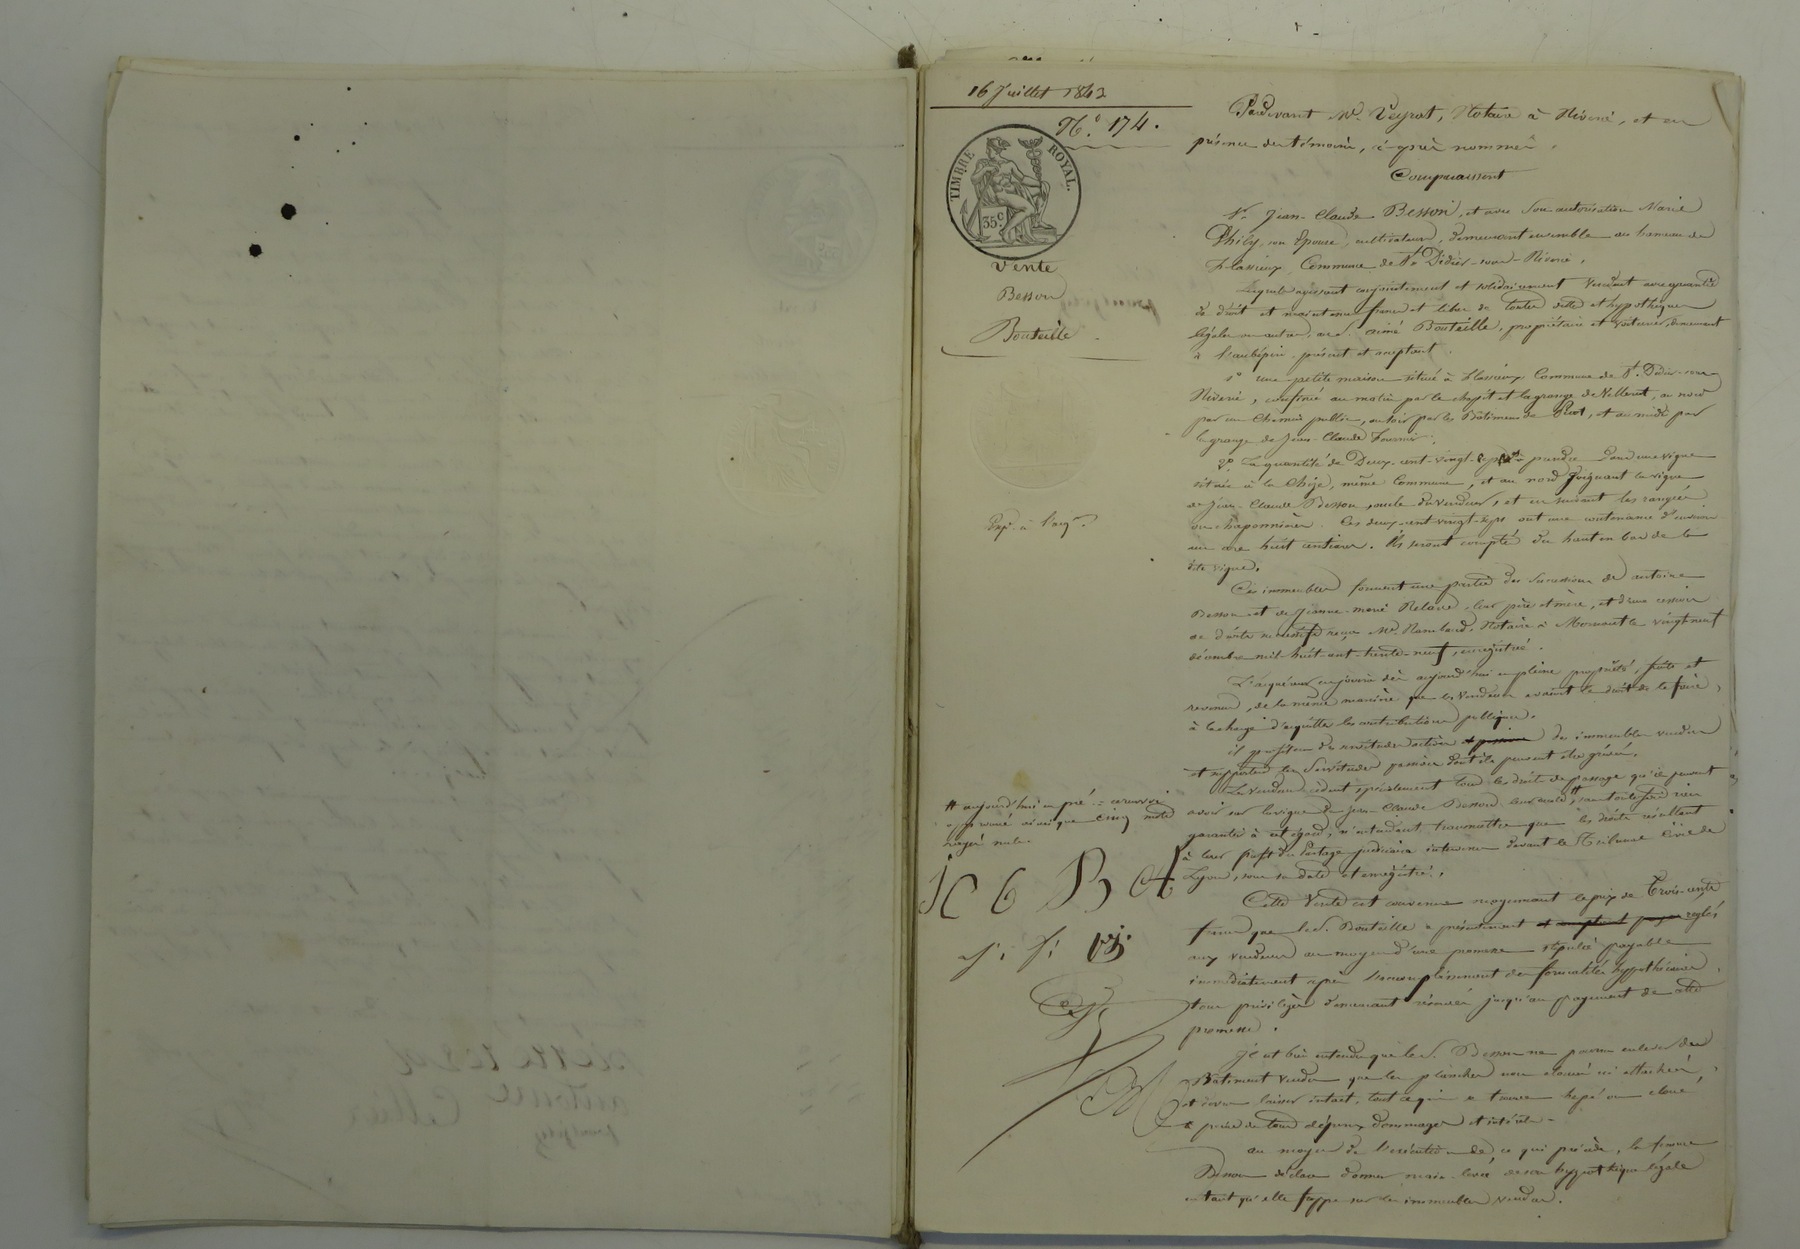 16 Juillet 1842
N.° 174.
TIMBRE ROYAL.
35 c.
Vente
Besson
à
Bouteille
Pardevant M.e Veyrat, Notaire à Riverie, et en
présence des témoins, ci après nommés,
Comparaissent
S.r Jean-Claude Besson, et avec son autorisation Marie
Phily, son épouse, cultivateurs, demeurant ensemble au hameau de
Flassieux, Commune de S.t Didier-sous-Riverie,
Lesquels agissant conjointement et solidairement vendent avec garantie
de droit et maintenue franc et libre de toutes dettes et hypothèques
légales ou autres, au S. aimé Bouteille, propriétaire et voiturier, demeurant
à l'aubépin, présent et acceptant.
1° une petite maison située à Flassieux Commune de S.t Didier-sous-
Riverie, confinée au matin par le chapit et la grange de Villeret, au nord
par un chemin public, au soir par les Bâtimens de Pivot, et au midi par
la grange de Jean-Claude Fournier.
2° La quantité de Deux-cent-vingt à prendre dans une vigne
située à la même Commune, et au nord joignant la vigne
de Jean-Claude Besson, oncle du vendeur, et en suivant les rangées
ou chaponnières. Ces deux-cent-vingt ceps ont une contenance d'environ
un are huit centiares. Ils seront comptés du haut en bas de la
dite vigne.
Ces immeubles forment une partie des successions de antoine
Besson et de Jeanne-marie Relave, leur père et mère, et d'une cession
de droits successifs reçue M.e Rambaud, Notaire à Mornant le vingt-neuf
décembre mil-huit-cent-trente-neuf, enregistré.
L'acquéreur en jouira dès aujourd'hui en pleine propriété, fruits et
revenus, de la même manière que les vendeurs avaient le droit de le faire,
à la charge d'acquitter les contributions publiques.
il profitera des servitudes actives des immeubles vendus
et supportera les servitudes passives dont ils peuvent être grévés.
Les vendeurs cèdent spécialement tous les droits de passage qu'ils peuvent
avoir sur la vigne de Jean-Claude Besson leur oncle, # sans toutefois rien
garantir à cet égard, n'entendant transmettre que les droits résultant
à leur profit du Partage judiciaire intervenu devant le Tribunal Civil de
Lyon, sous sa date et enregistré.
# aujourd'hui en pré := ce renvoi
approuvé ainsi que cinq mots
rayés nuls.
J C B B A
Cette vente est convenue moyennant le prix de Trois-cents
francs que le S. Bouteille a présentement réglés
aux vendeurs au moyen d'une promesse stipulée payable
immédiatement après l'accomplissement des formalités hypothécaires,
tous privilèges demeurant réservés jusqu'au payement de cette
promesse.
Il est bien entendu que le S. Besson ne pourra enlever du
Bâtiment vendu que les planches non clouées ni attachées,
et devra laisser intact, tout ce qui se trouve ou cloué,
à peine de tous dépens, dommages et intérêts.
au moyen de l'exécution de ce qui précède, la femme
Besson déclare donner main-levée de son hypothèque légale
en tant qu'elle frappe sur les immeubles vendus.